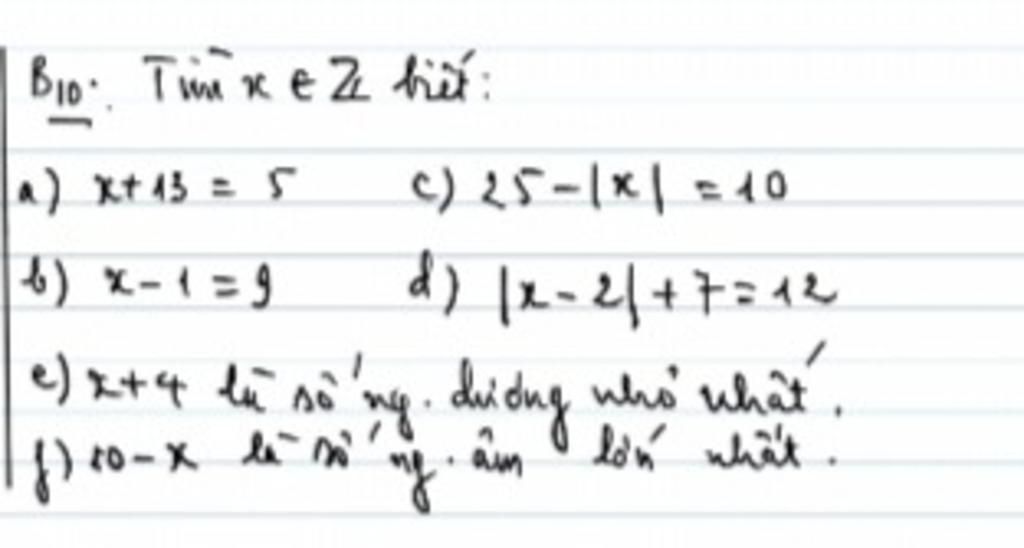 B10: Tìm x ∈ Z biết:
a) x+13 = 5 c) 25-|x| = 10
b) x-1 = 9 d) |x-2|+7=12
e) x+4 là số ng. dương nhỏ nhất.
f) 10-x là số ng. âm lớn nhất.